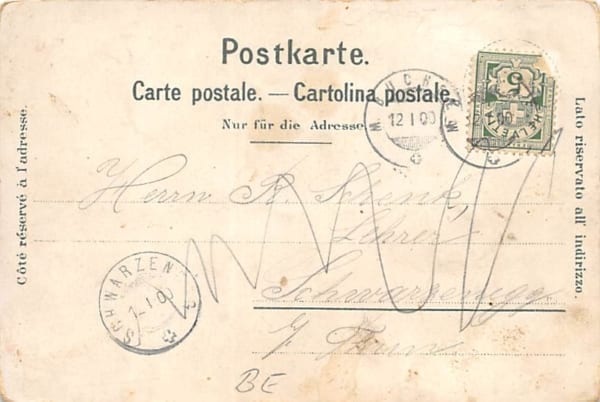 Postkarte.
Carte postale. — Cartolina postale
Nur für die Adresse.
Côté réservé à l'adresse.
Lato riservato all' indirizzo.
12 I 00
HELVETIA
5
Herrn R. Schenk,
Lehrer
Schwarzenegg
b/ Thun
SCHWARZEN
I 00
BE